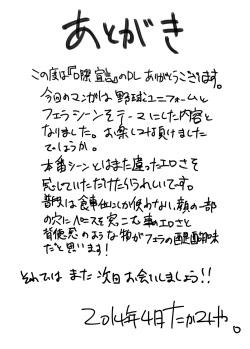 あとがき
この度は『口隙宣言』のDLありがとうございます。
今回のマンガは野球ユニフォームと
フェラシーンをテーマにした内容と
なりました。お楽しみ頂けました
でしょうか。
本番シーンとはまた違ったエロさを
感じていただけたらうれしいです。
普段は食事位にしか使わない、顔の一部
の穴にペニスを突こむ事のエロさと
背徳感のような物がフェラの醍醐味
だと思います!
それでは また次回お会いしましょう!!
2014年4月 たかみや。